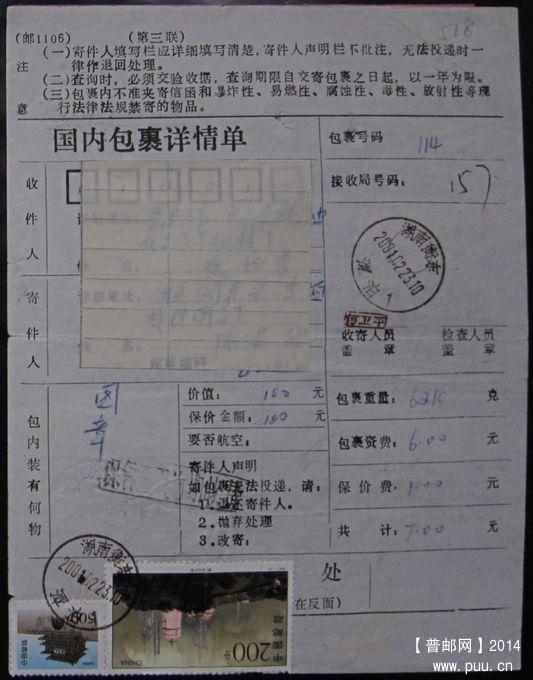 518
(邮1106) (第三联)
注意
(一)寄件人填写栏应详细填写清楚,寄件人声明栏不批注,无法投递时一
律作退回处理。
(二)查询时,必须交验收据,查询期限自交寄包裹之日起,以一年为限。
(三)包裹内不准夹寄信函和爆炸性、易燃性、腐蚀性、毒性、放射性等现
行法律法规禁寄的物品。
国内包裹详情单
包裹号码 114
接收局号码: 157
收件人
寄件人
详细地址:
姓 名:
邮政编码
湖南衡东
收寄人员
盖 章
检查人员
盖 章
包内装有何物
图章
价值: 100 元
保价金额: 100 元
要否航空:
寄件人声明
如包裹无法投递,请:
1.退还寄件人。
2.抛弃处理
3.改寄:
包裹重量: 6210 克
包裹资费: 6.00 元
保价费: 1.00 元
共 计: 7.00 元
处
在反面)
湖南衡东
50分
中国邮政
CHINA
200分
中国邮政
CHINA
【普邮网】2014
www.puu.cn